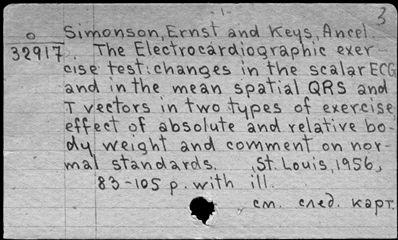 3
-1-
o Simonson, Ernst and Keys, Ancel.
32917. The Electrocardiographic exer-
cise test: changes in the scalar ECG
and in the mean spatial QRS and
T vectors in two types of exercise,
effect of absolute and relative bo-
dy weight and comment on nor-
mal standards. St. Louis, 1956,
83-105 p. with ill.
см. след. карт.